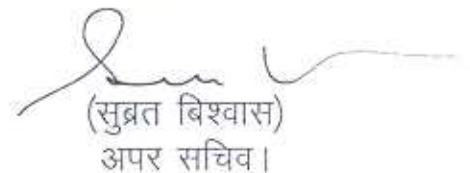 (सुब्रत बिश्वास)
अपर सचिव।